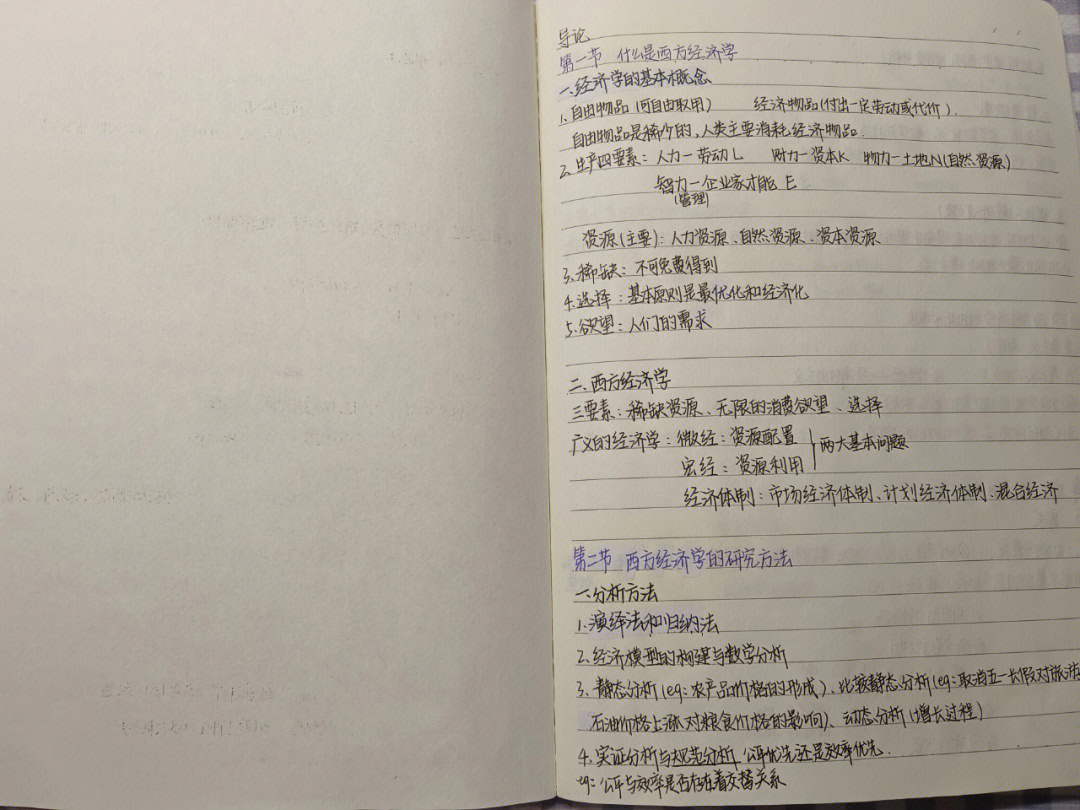 导论
第一节 什么是西方经济学
一.经济学的基本概念
1.自由物品(可自由取用) 经济物品(付出一定劳动或代价).
自由物品是稀少的,人类主要消耗经济物品.
2.生产四要素:人力—劳动L 财力—资本K 物力—土地N(自然资源)
智力—企业家才能E
(管理)
资源(主要):人力资源、自然资源、资本资源
3.稀缺:不可免费得到
4.选择:基本原则是最优化和经济化
5.欲望:人们的需求
二.西方经济学
三要素:稀缺资源、无限的消费欲望、选择
广义的经济学:微经:资源配置 两大基本问题
宏经:资源利用
经济体制:市场经济体制、计划经济体制、混合经济
第二节 西方经济学的研究方法
一.分析方法
1.演绎法和归纳法
2.经济模型的构建与数学分析
3.静态分析(eg:农产品价格的形成)、比较静态分析(eg:取消五一长假对旅游
石油价格上涨对粮食价格的影响)、动态分析(增长过程)
4.实证分析与规范分析 公平优先还是效率优先.
eg:公平与效率是否存在着交替关系